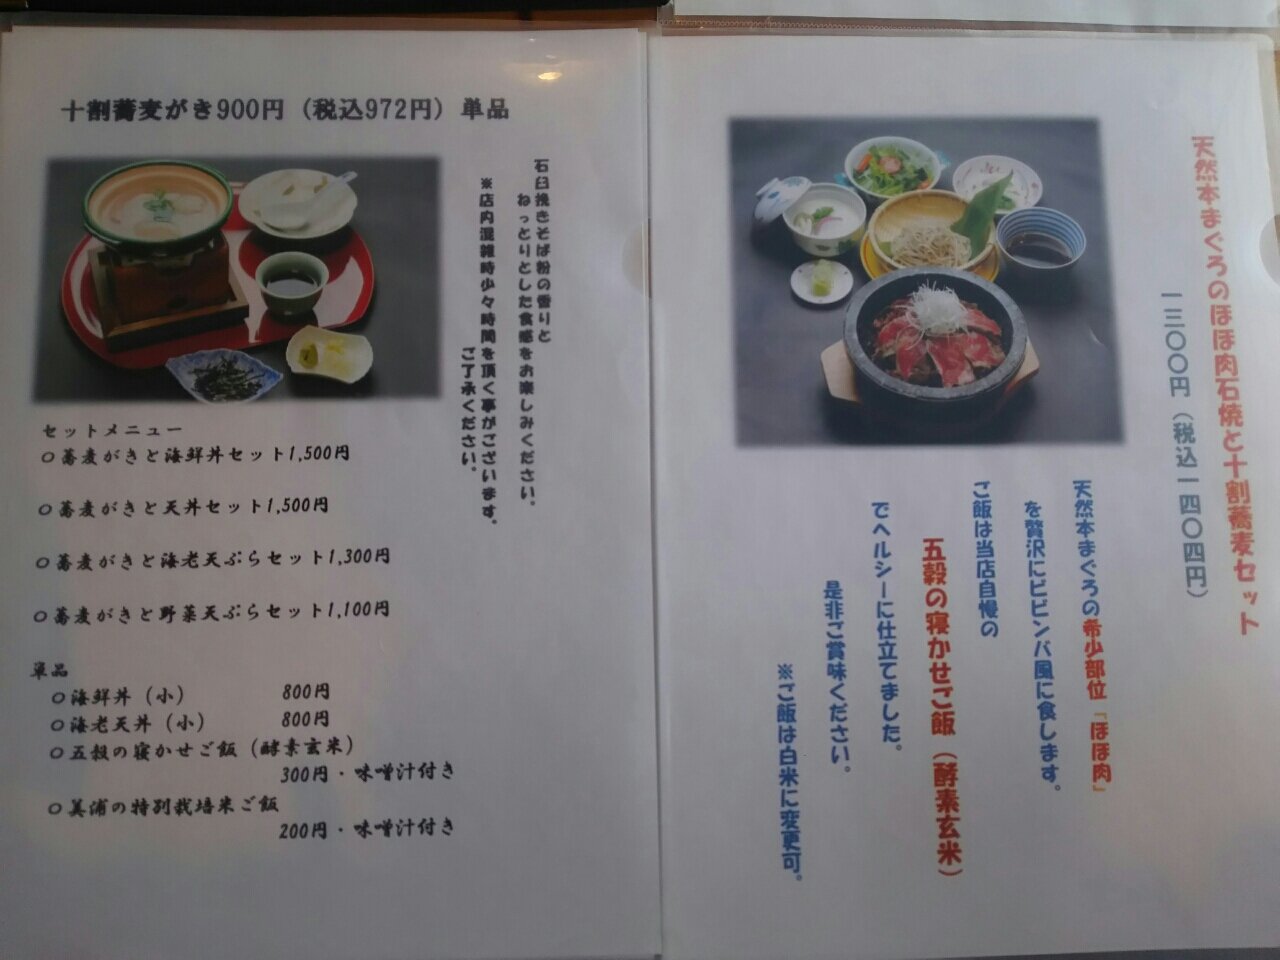 十割蕎麦がき900円（税込972円）単品
石臼挽きそば粉の香りと
ねっとりとした食感をお楽しみください。
※店内混雑時少々時間を頂く事がございます。
ご了承ください。
セットメニュー
○蕎麦がきと海鮮丼セット1,500円
○蕎麦がきと天丼セット1,500円
○蕎麦がきと海老天ぷらセット1,300円
○蕎麦がきと野菜天ぷらセット1,100円
単品
○海鮮丼（小） 800円
○海老天丼（小） 800円
○五穀の寝かせご飯（酵素玄米）
300円・味噌汁付き
○美浦の特別栽培米ご飯
200円・味噌汁付き
天然本まぐろのほほ肉石焼と十割蕎麦セット
一三〇〇円（税込一四〇四円）
天然本まぐろの希少部位「ほほ肉」
を贅沢にビビンバ風に食します。
ご飯は当店自慢の
五穀の寝かせご飯（酵素玄米）
でヘルシーに仕立てました。
是非ご賞味ください。
※ご飯は白米に変更可。